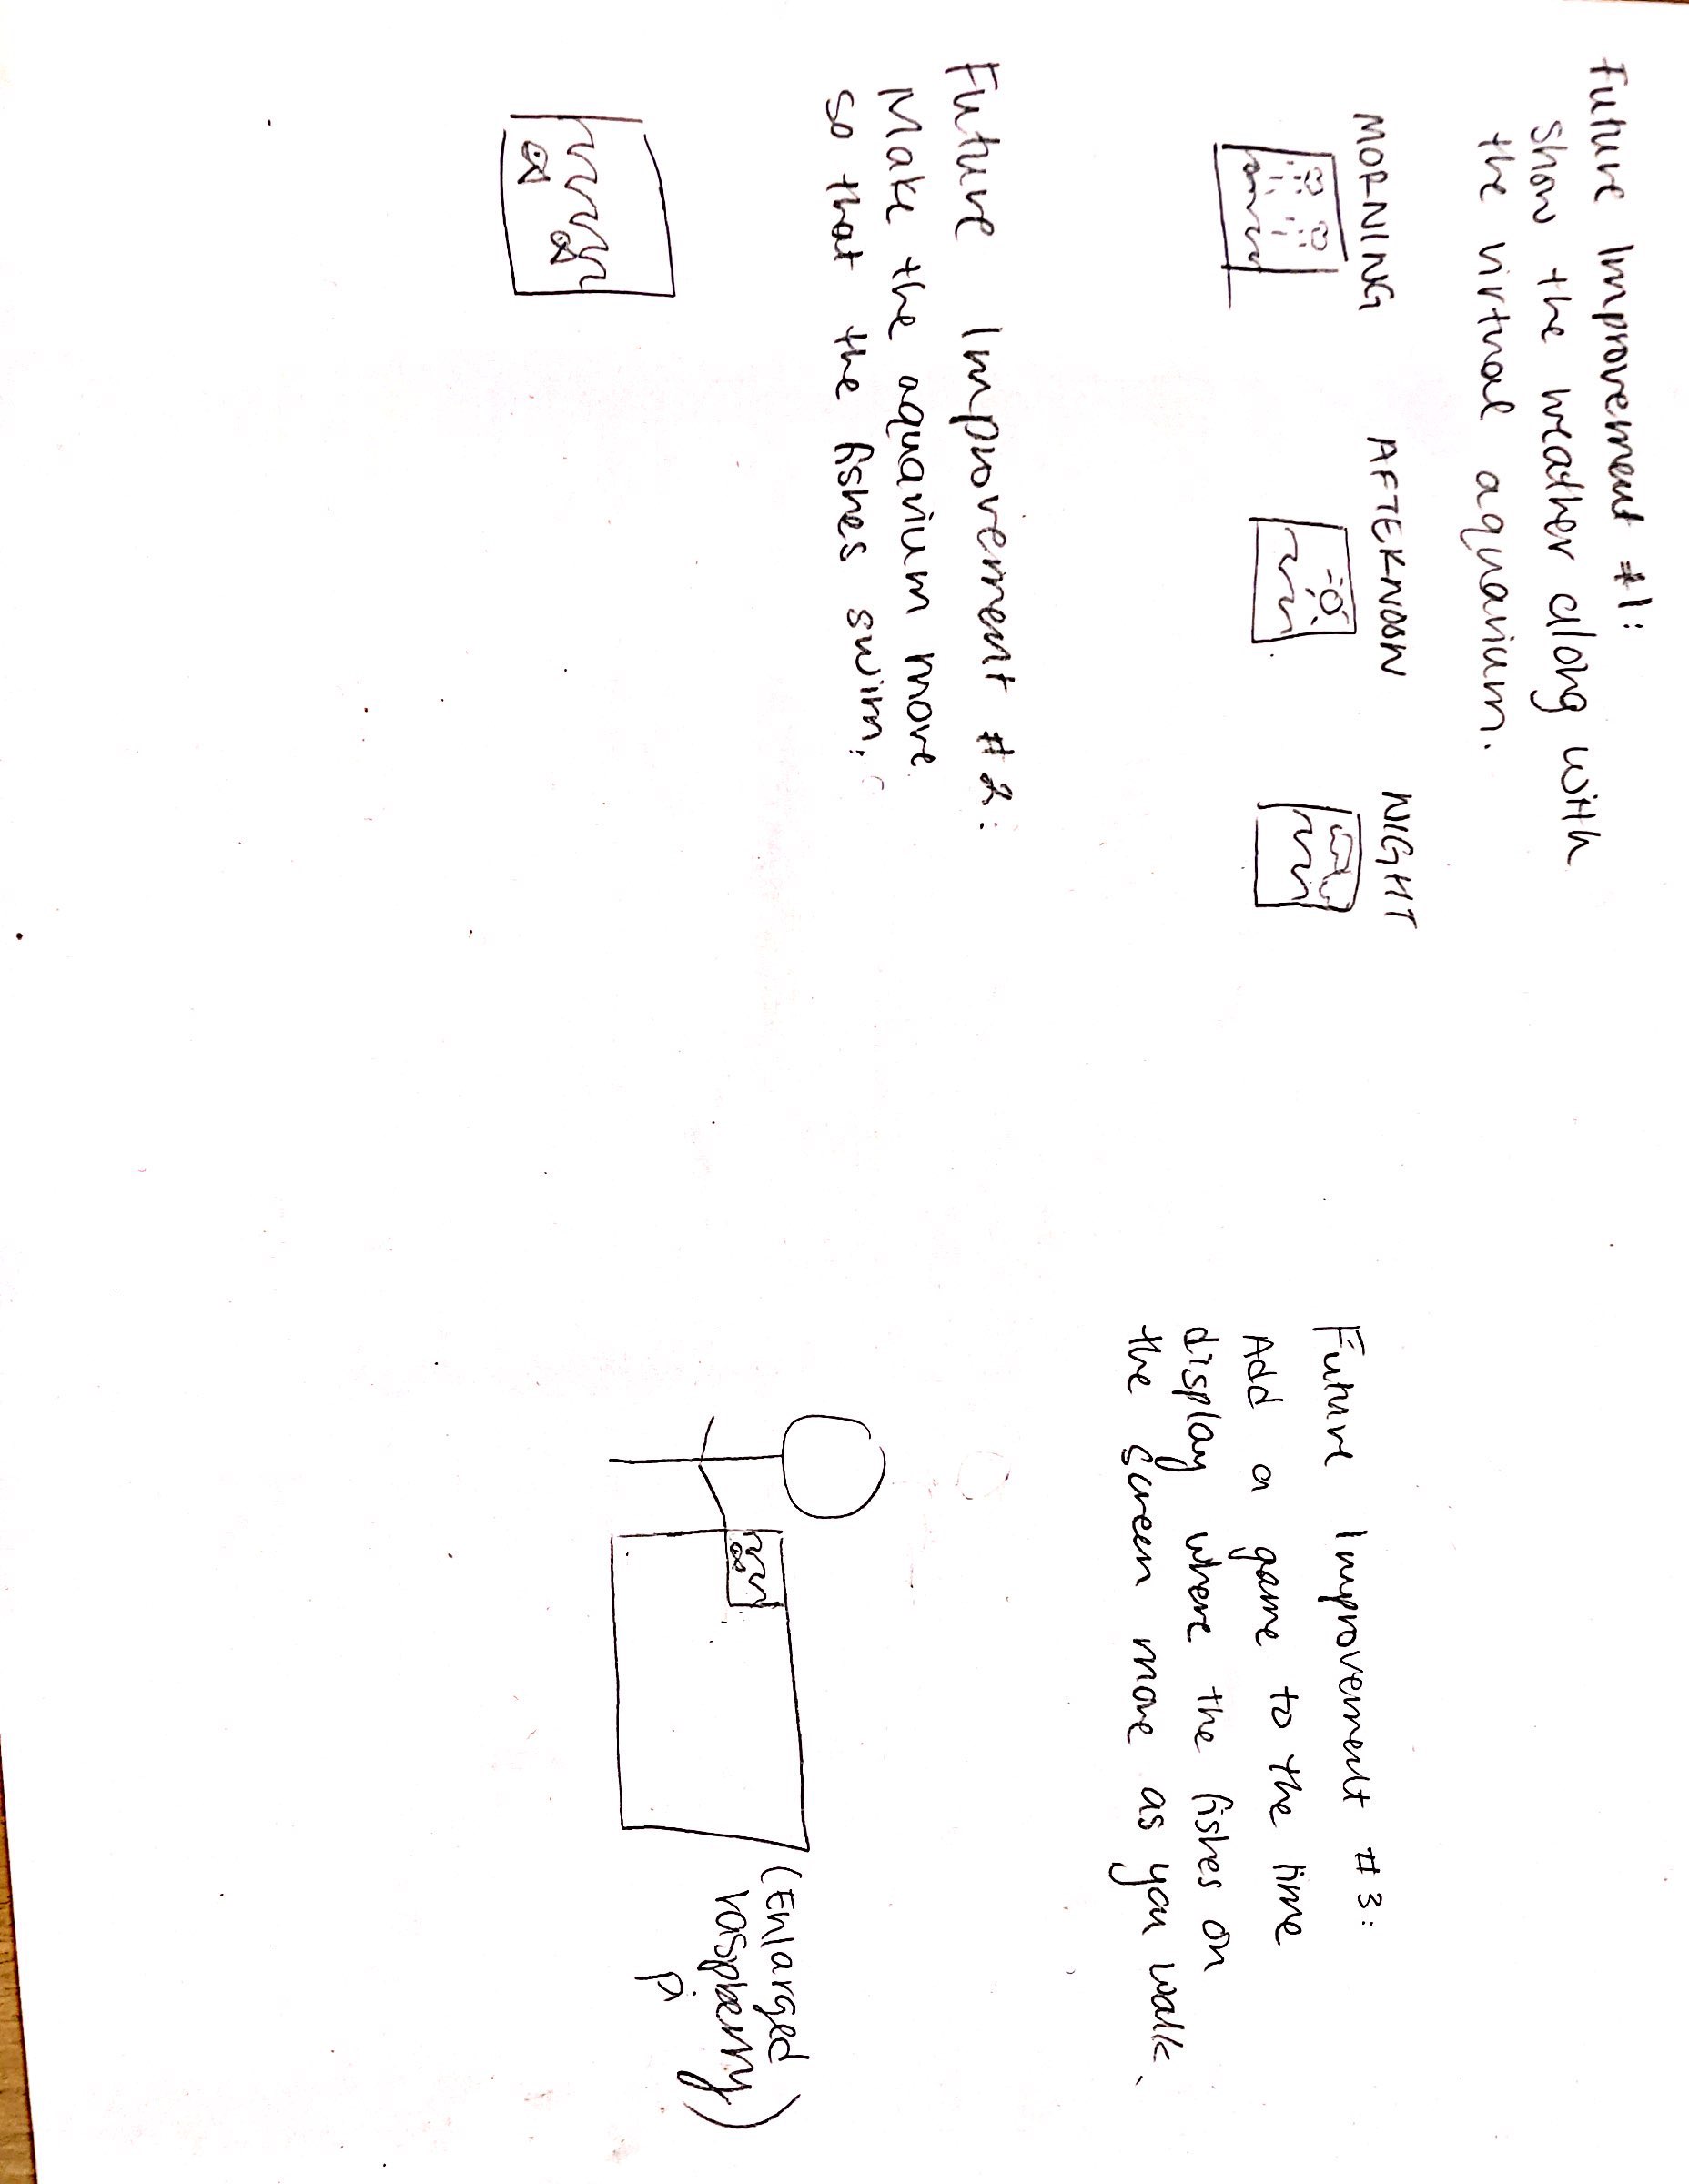 Future Improvement #1:
Show the weather along with
the virtual aquarium.
MORNING AFTERNOON NIGHT
Future Improvement #2:
Make the aquarium move
so that the fishes swim.
Future Improvement #3:
Add a game to the time
display where the fishes on
the screen move as you walk.
(Enlarged
raspberry
Pi)